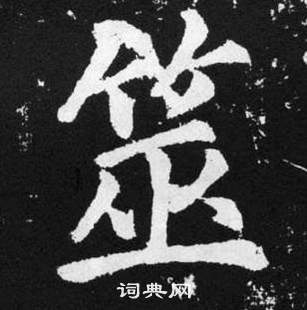 筮
词典网